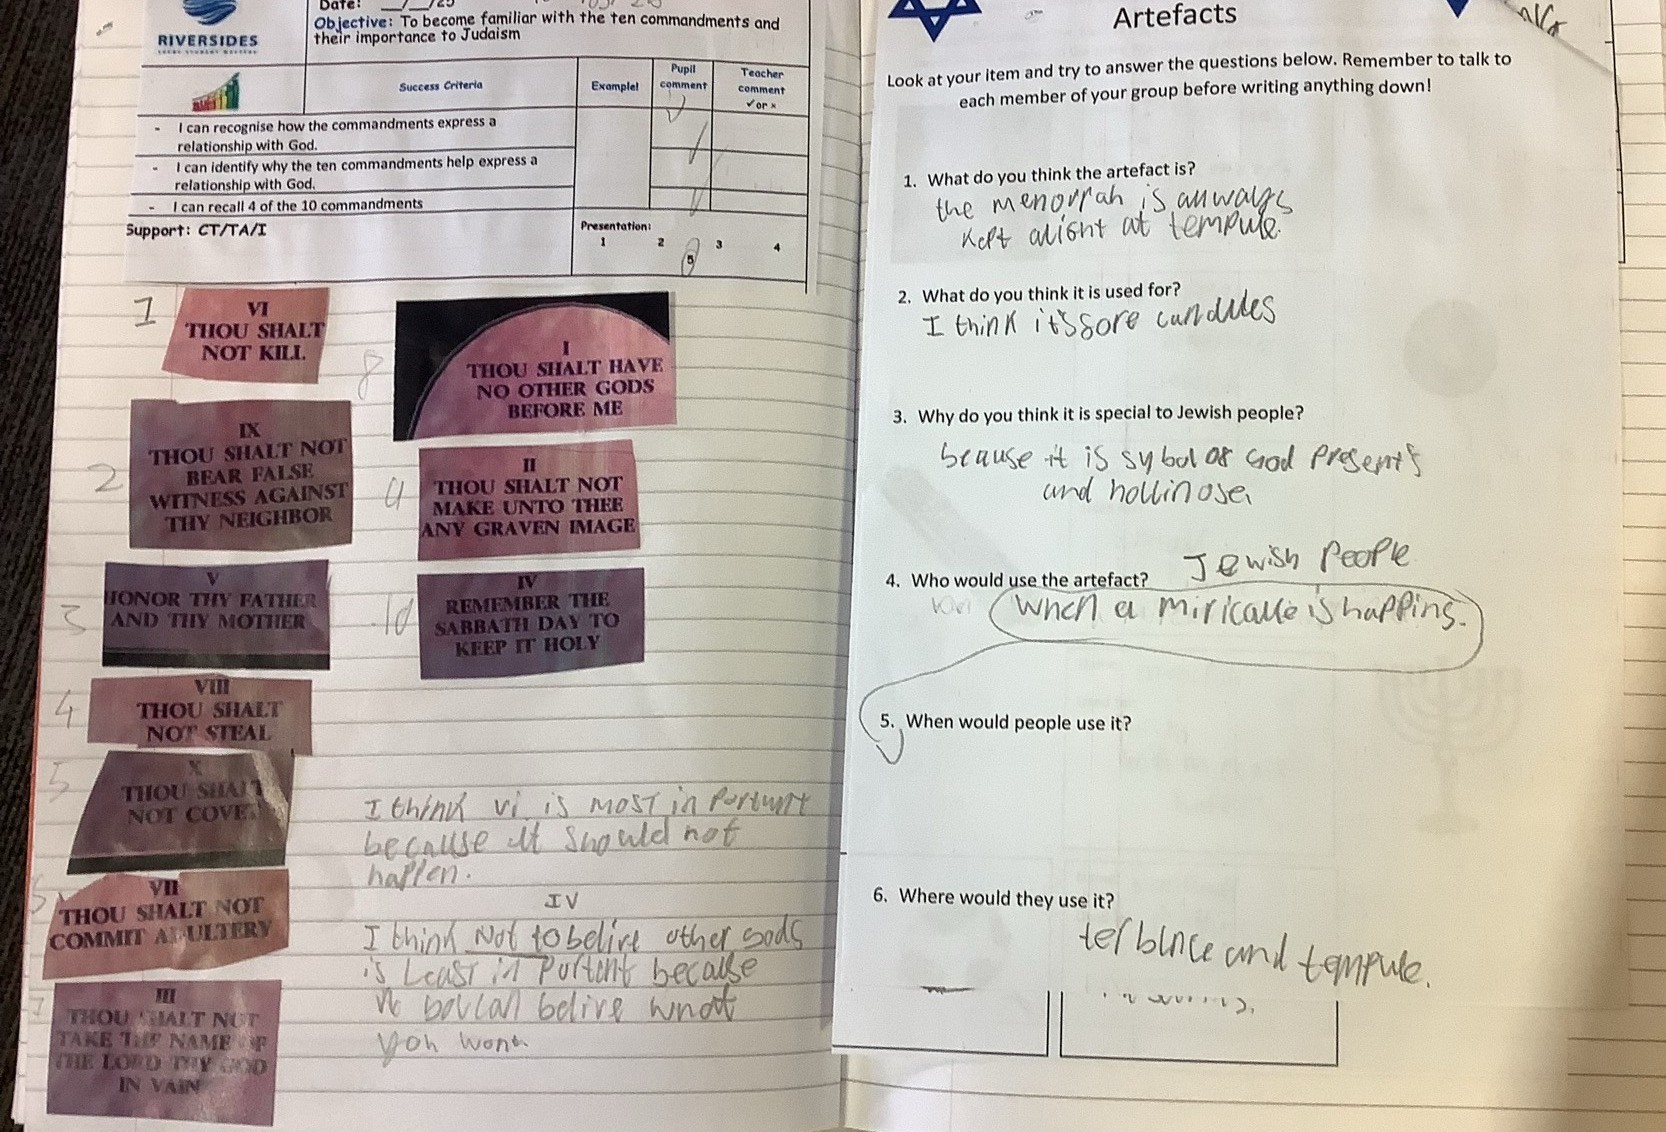 Date: __/__/25
RIVERSIDES
Objective: To become familiar with the ten commandments and
their importance to Judaism
Success Criteria
Example!
Pupil
comment
Teacher
comment
✓ or ×
- I can recognise how the commandments express a
relationship with God.
- I can identify why the ten commandments help express a
relationship with God.
- I can recall 4 of the 10 commandments
Support: CT/TA/I
Presentation:
1 2 3 4
5
1
VI
THOU SHALT
NOT KILL
2
IX
THOU SHALT NOT
BEAR FALSE
WITNESS AGAINST
THY NEIGHBOR
3
V
HONOR THY FATHER
AND THY MOTHER
4
VIII
THOU SHALT
NOT STEAL
5
X
THOU SHALT
NOT COVE
VII
THOU SHALT NOT
COMMIT ADULTERY
7
III
THOU SHALT NOT
TAKE THE NAME OF
THE LORD THY GOD
IN VAIN
8
I
THOU SHALT HAVE
NO OTHER GODS
BEFORE ME
9
II
THOU SHALT NOT
MAKE UNTO THEE
ANY GRAVEN IMAGE
10
IV
REMEMBER THE
SABBATH DAY TO
KEEP IT HOLY
I think vi is most in portunt
because it should not
happen.
IV
I think Not to belive other gods
is least in portent because
belive what
you want
Artefacts
Look at your item and try to answer the questions below. Remember to talk to
each member of your group before writing anything down!
1. What do you think the artefact is?
the menorrah is allways
kept alight at tempule.
2. What do you think it is used for?
I think it's fore candules
3. Why do you think it is special to Jewish people?
beause it is sybol of God presents
and
4. Who would use the artefact?
Jewish people
when a miricaule is happing.
5. When would people use it?
6. Where would they use it?
and tempule.